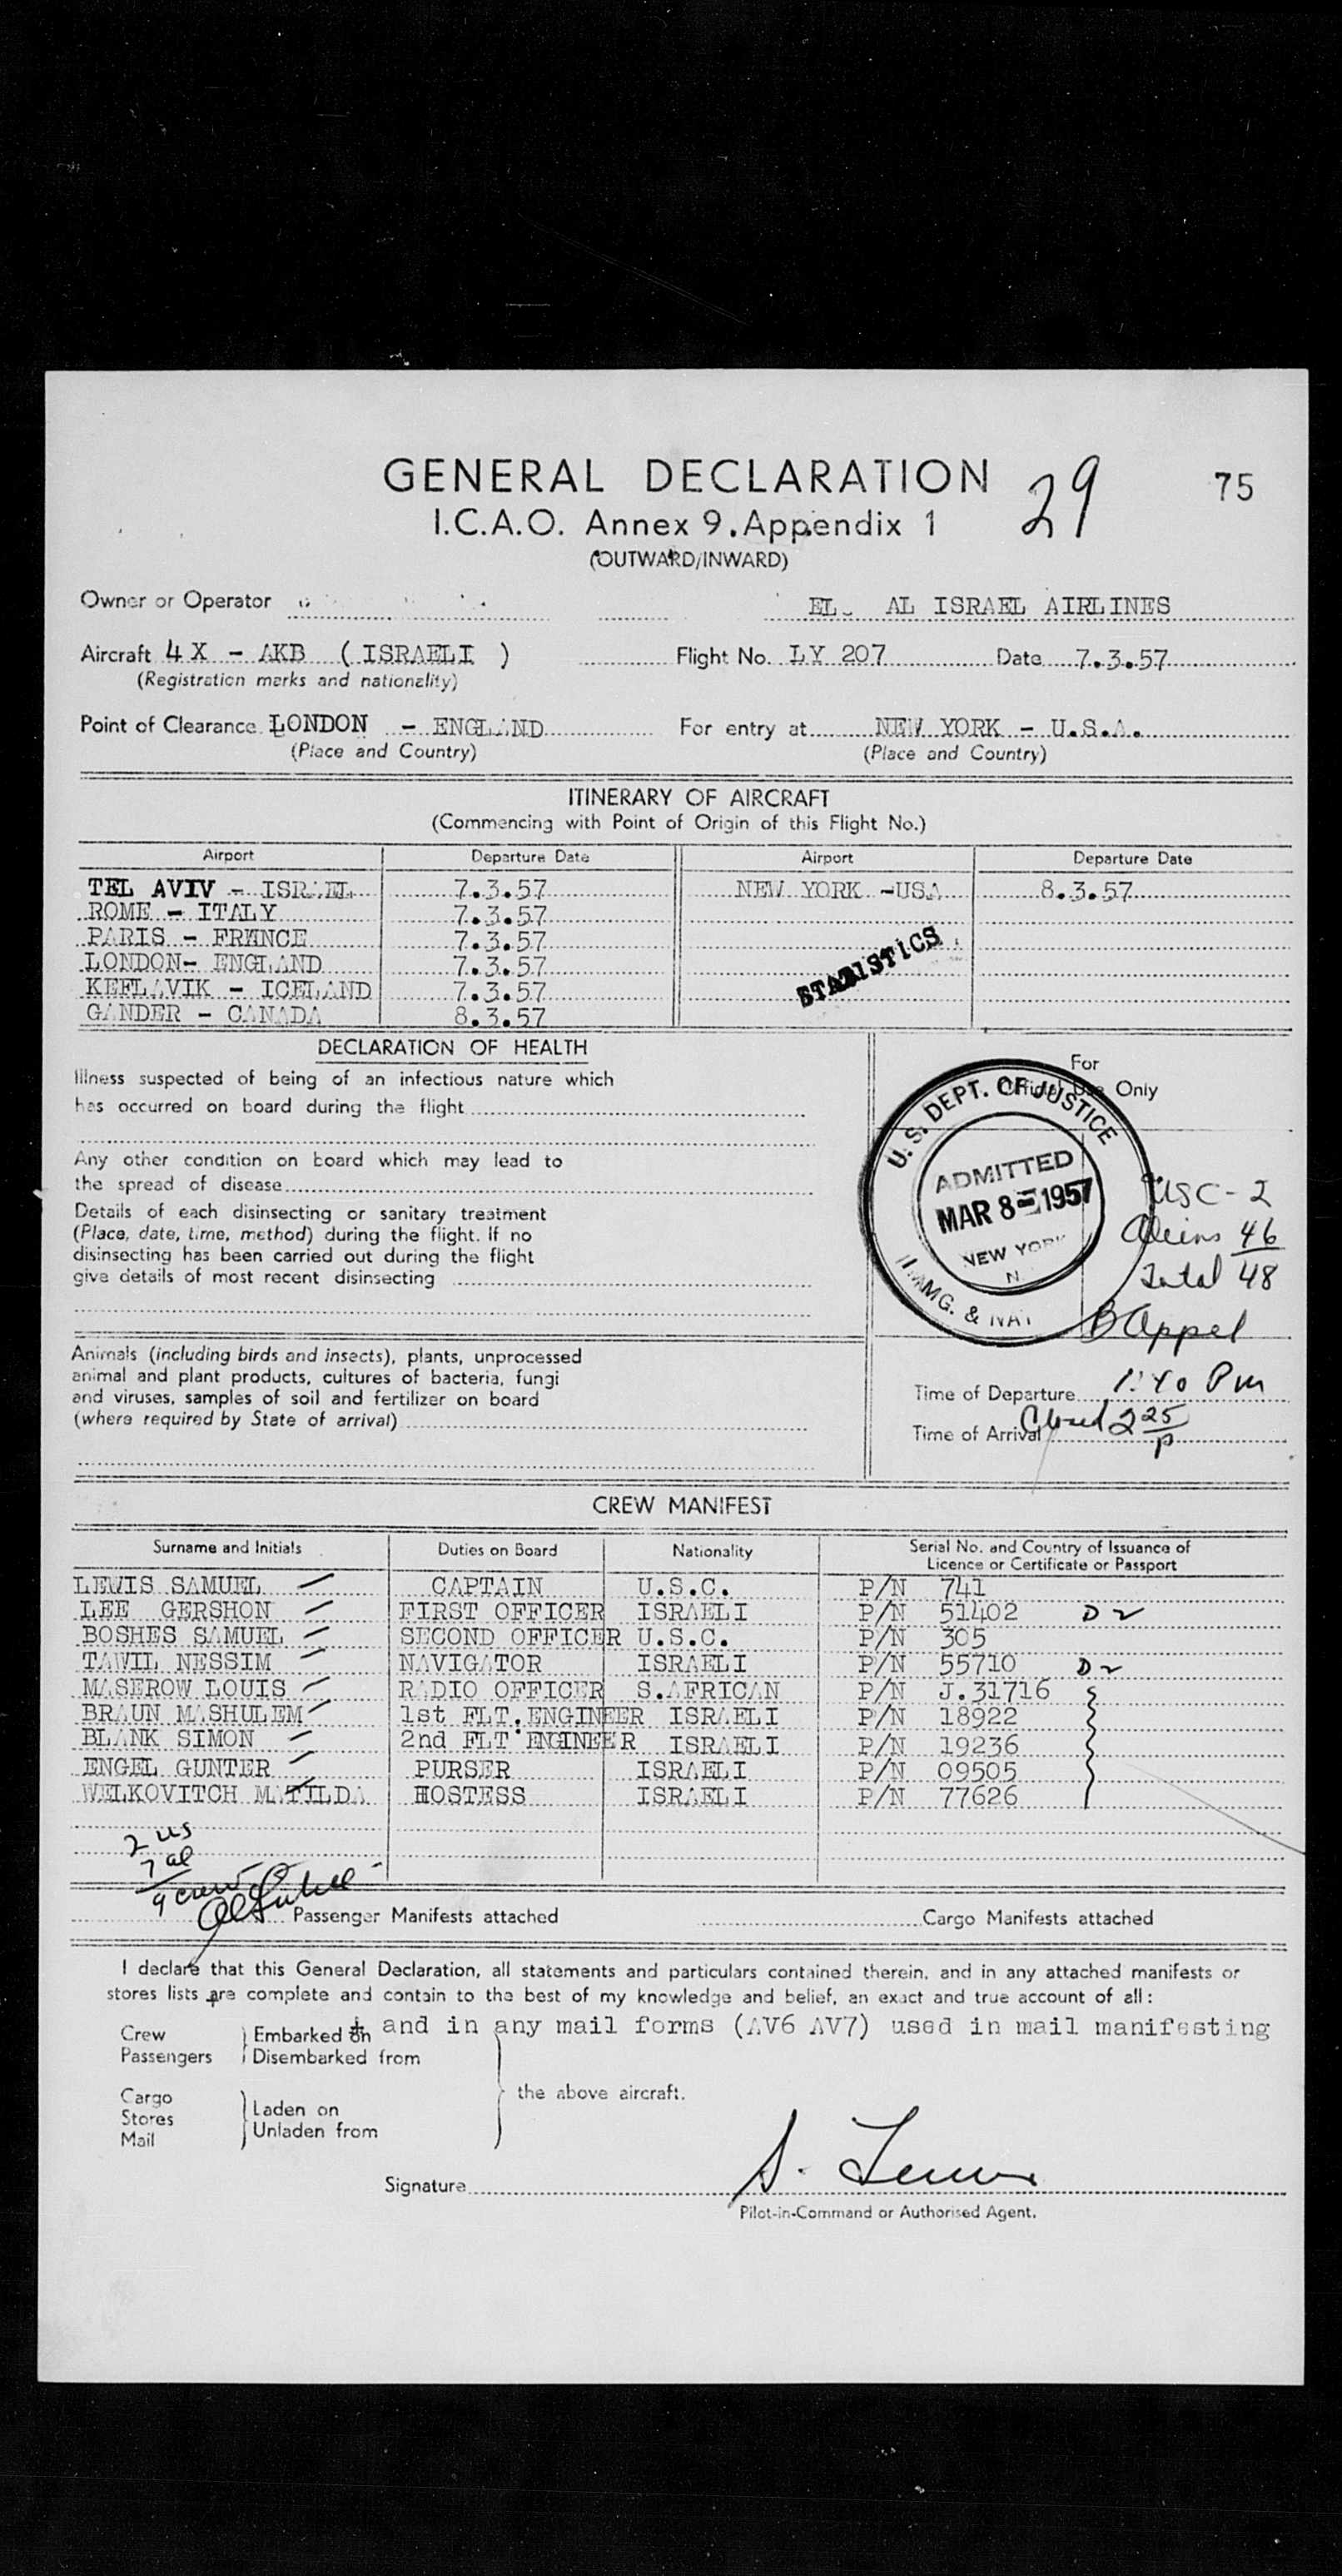 GENERAL DECLARATION 29 75
I.C.A.O. Annex 9. Appendix 1
(OUTWARD/INWARD)
Owner or Operator EL. AL ISRAEL AIRLINES
Aircraft 4X - AKB (ISRAELI ) Flight No. LY 207 Date 7.3.57
(Registration marks and nationality)
Point of Clearance LONDON - ENGLAND For entry at NEW YORK - U.S.A.
(Place and Country) (Place and Country)
ITINERARY OF AIRCRAFT
(Commencing with Point of Origin of this Flight No.)
Airport Departure Date Airport Departure Date
TEL AVIV - ISRAEL 7.3.57 NEW YORK -USA 8.3.57
ROME - ITALY 7.3.57
PARIS - FRANCE 7.3.57
LONDON- ENGLAND 7.3.57
KEFLAVIK - ICELAND 7.3.57
GANDER - CANADA 8.3.57
STATISTICS
DECLARATION OF HEALTH
Illness suspected of being of an infectious nature which
has occurred on board during the flight
Any other condition on board which may lead to
the spread of disease
Details of each disinsecting or sanitary treatment
(Place, date, time, method) during the flight. If no
disinsecting has been carried out during the flight
give details of most recent disinsecting
Animals (including birds and insects), plants, unprocessed
animal and plant products, cultures of bacteria, fungi
and viruses, samples of soil and fertilizer on board
(where required by State of arrival)
For
Official Use Only
U. S. DEPT. OF JUSTICE
ADMITTED
MAR 8-1957
NEW YORK
N
IMMG. & NAT
USC - 2
Aliens 46
Total 48
B Appel
Time of Departure 1:40 Pm
Time of Arrival Closed 2 25 P
CREW MANIFEST
Surname and Initials Duties on Board Nationality Serial No. and Country of Issuance of
Licence or Certificate or Passport
LEWIS SAMUEL CAPTAIN U.S.C. P/N 741
LEE GERSHON FIRST OFFICER ISRAELI P/N 51402 D2
BOSHES SAMUEL SECOND OFFICER U.S.C. P/N 305
TAWIL NESSIM NAVIGATOR ISRAELI P/N 55710 D2
MASEROW LOUIS RADIO OFFICER S.AFRICAN P/N J.31716
BRAUN MASHULEM 1st FLT.ENGINEER ISRAELI P/N 18922
BLANK SIMON 2nd FLT ENGINEER ISRAELI P/N 19236
ENGEL GUNTER PURSER ISRAELI P/N 09505
WELKOVITCH MATILDA HOSTESS ISRAELI P/N 77626
2 us
7 al
9 crew
Passenger Manifests attached Cargo Manifests attached
I declare that this General Declaration, all statements and particulars contained therein, and in any attached manifests or
stores lists are complete and contain to the best of my knowledge and belief, an exact and true account of all:
Crew Embarked on + and in any mail forms (AV6 AV7) used in mail manifesting
Passengers Disembarked from
the above aircraft.
Cargo
Stores Laden on
Mail Unladen from
Signature S. Lewis
Pilot-in-Command or Authorised Agent.